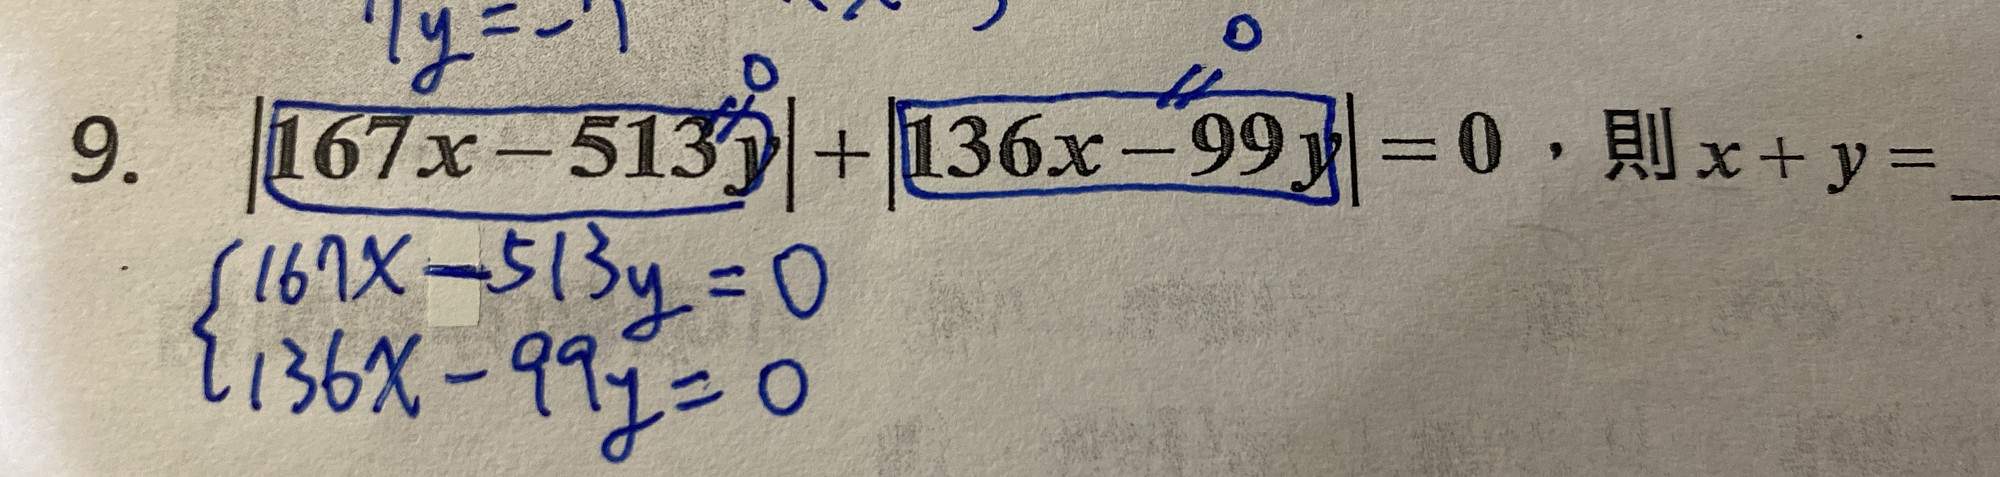 7y=-7
0 0
9. |167x-513y|+|136x-99y|=0，則x+y=_
{167x-513y=0
136x-99y=0